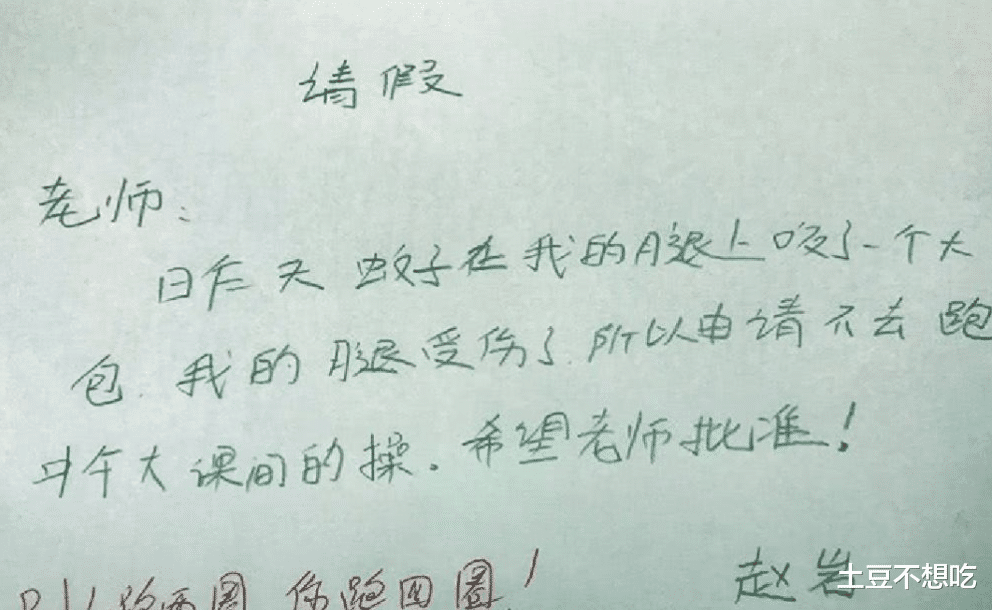 请假
老师:
昨天 蚊子在我的腿上咬了一个大
包.我的腿受伤了.所以申请不去跑
大课间的操.希望老师批准!
赵岩
跑两圈 你跑四圈!
土豆不想吃